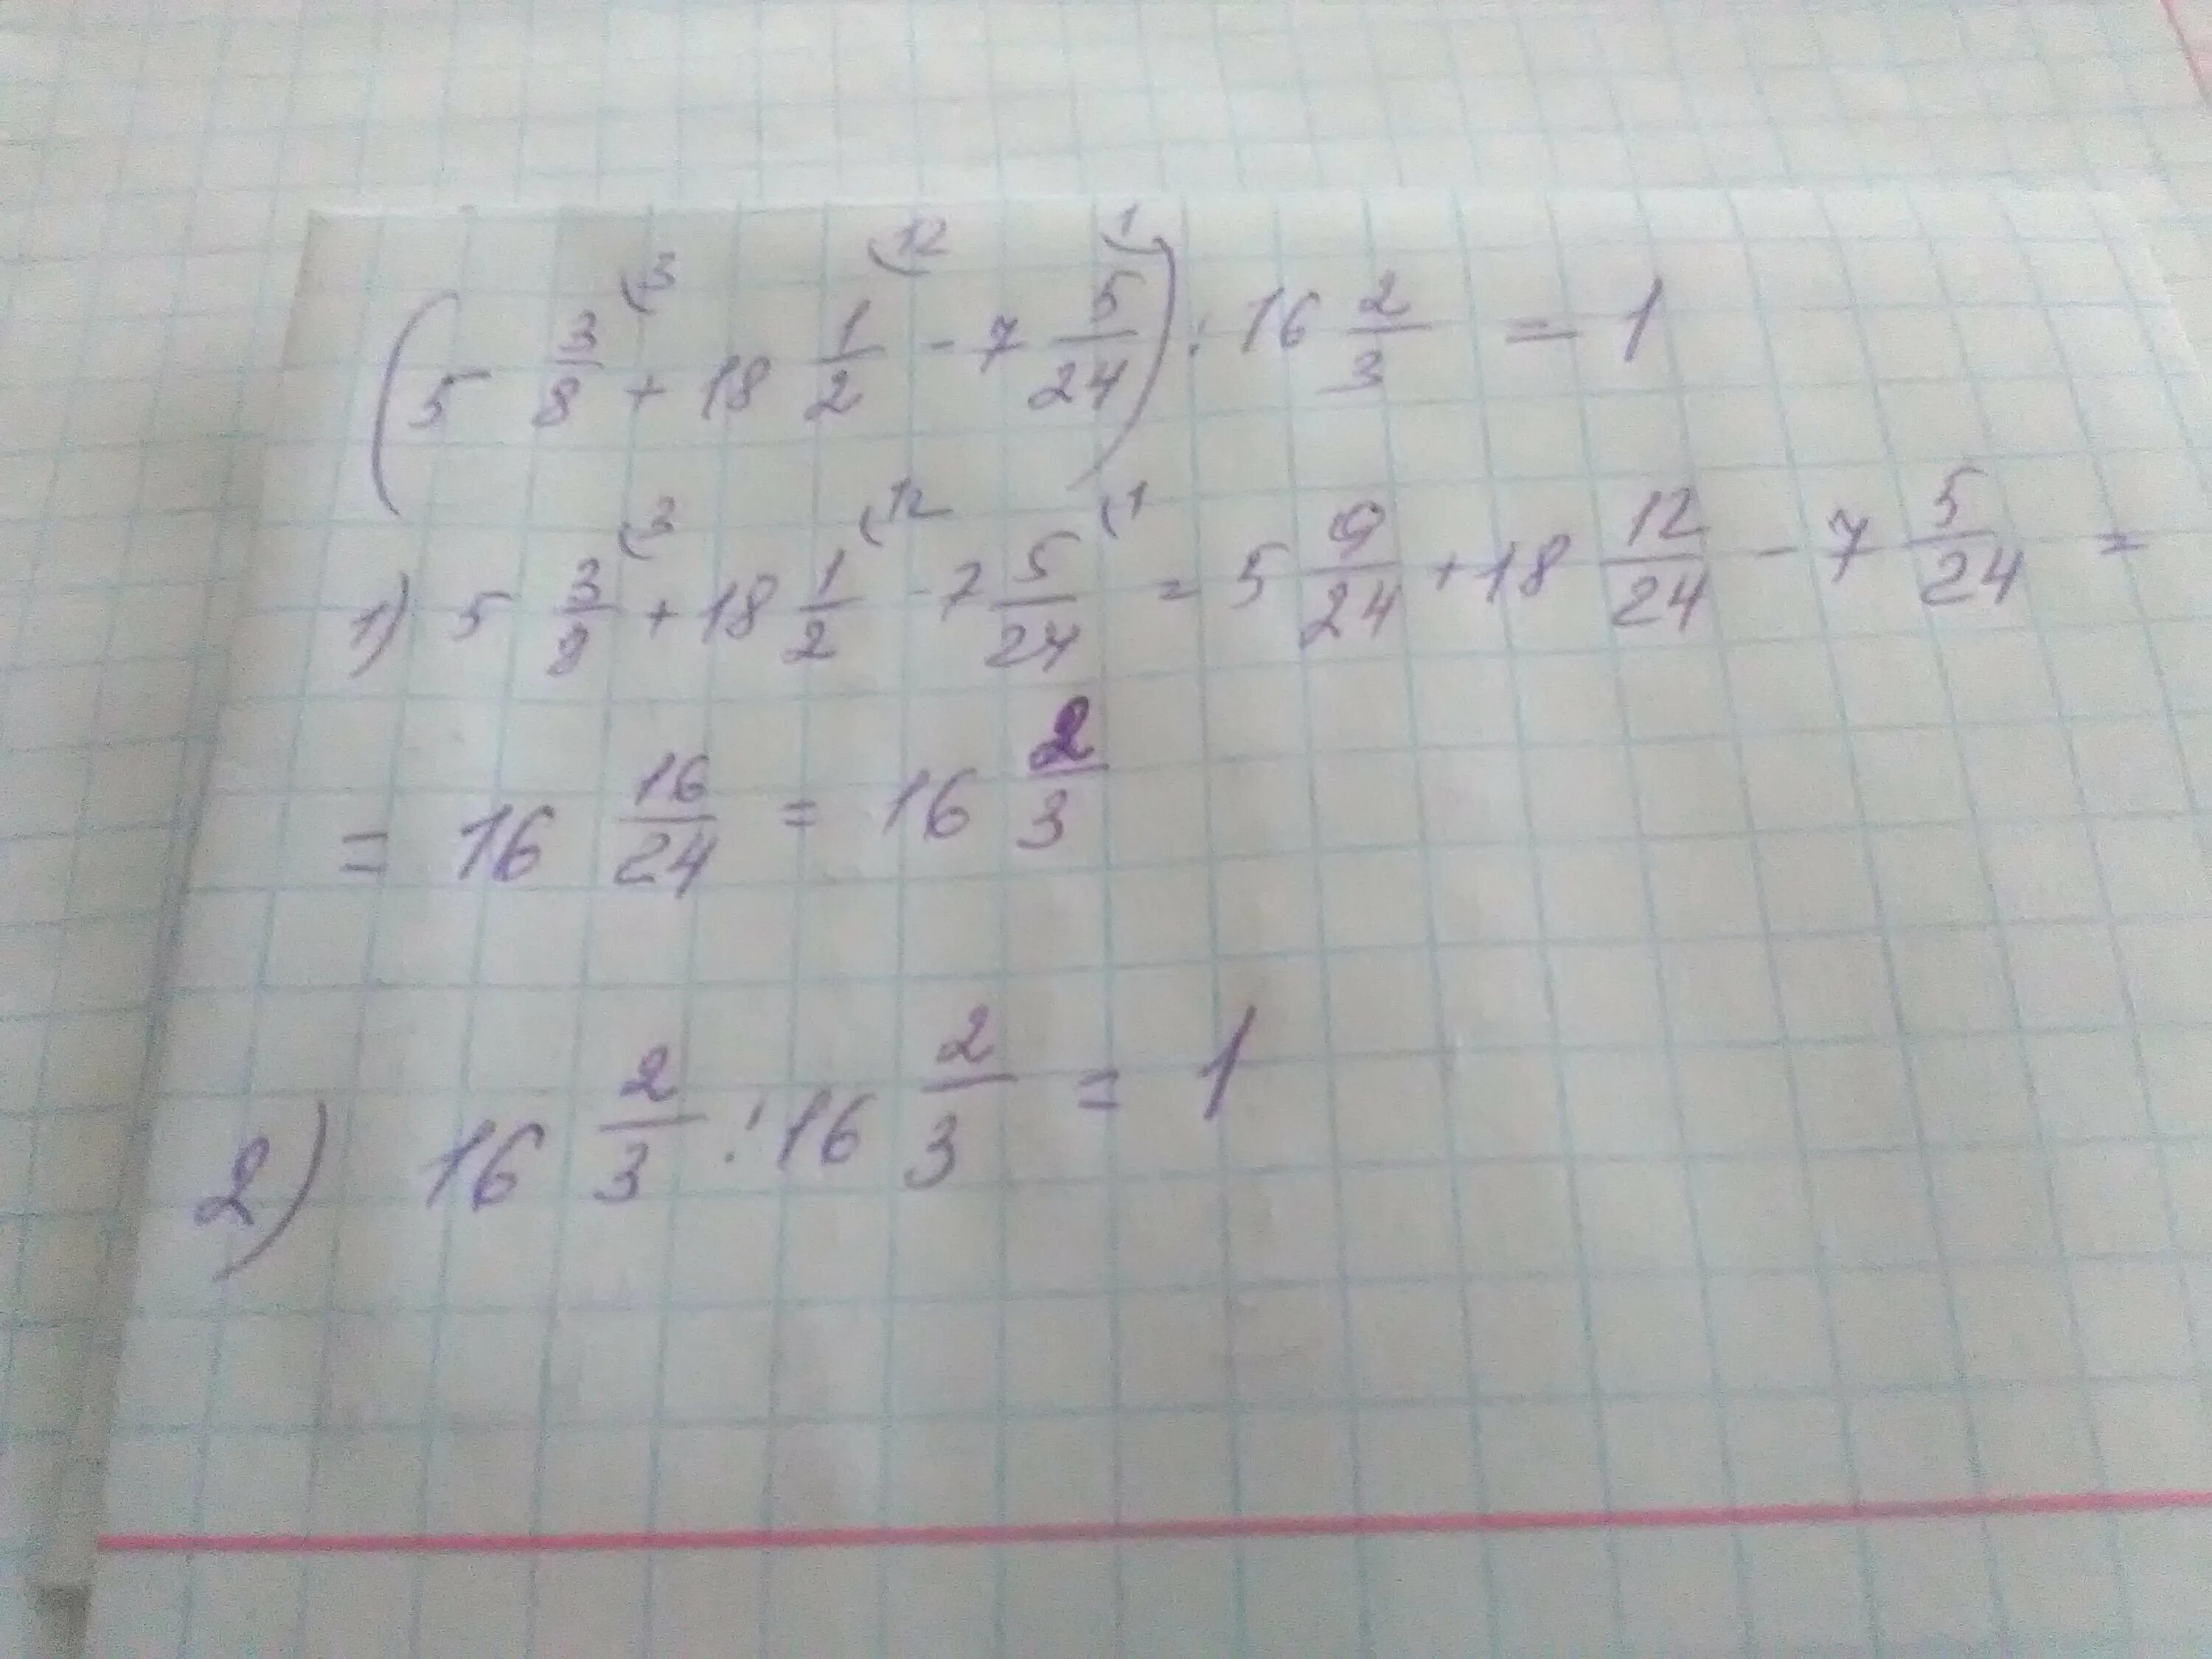 (5 3/8 (3 + 18 1/2 (12 - 7 5/24 (1) : 16 2/3 = 1
1) 5 3/8 (3 + 18 1/2 (12 - 7 5/24 (1 = 5 9/24 + 18 12/24 - 7 5/24 =
= 16 16/24 = 16 2/3
2) 16 2/3 : 16 2/3 = 1